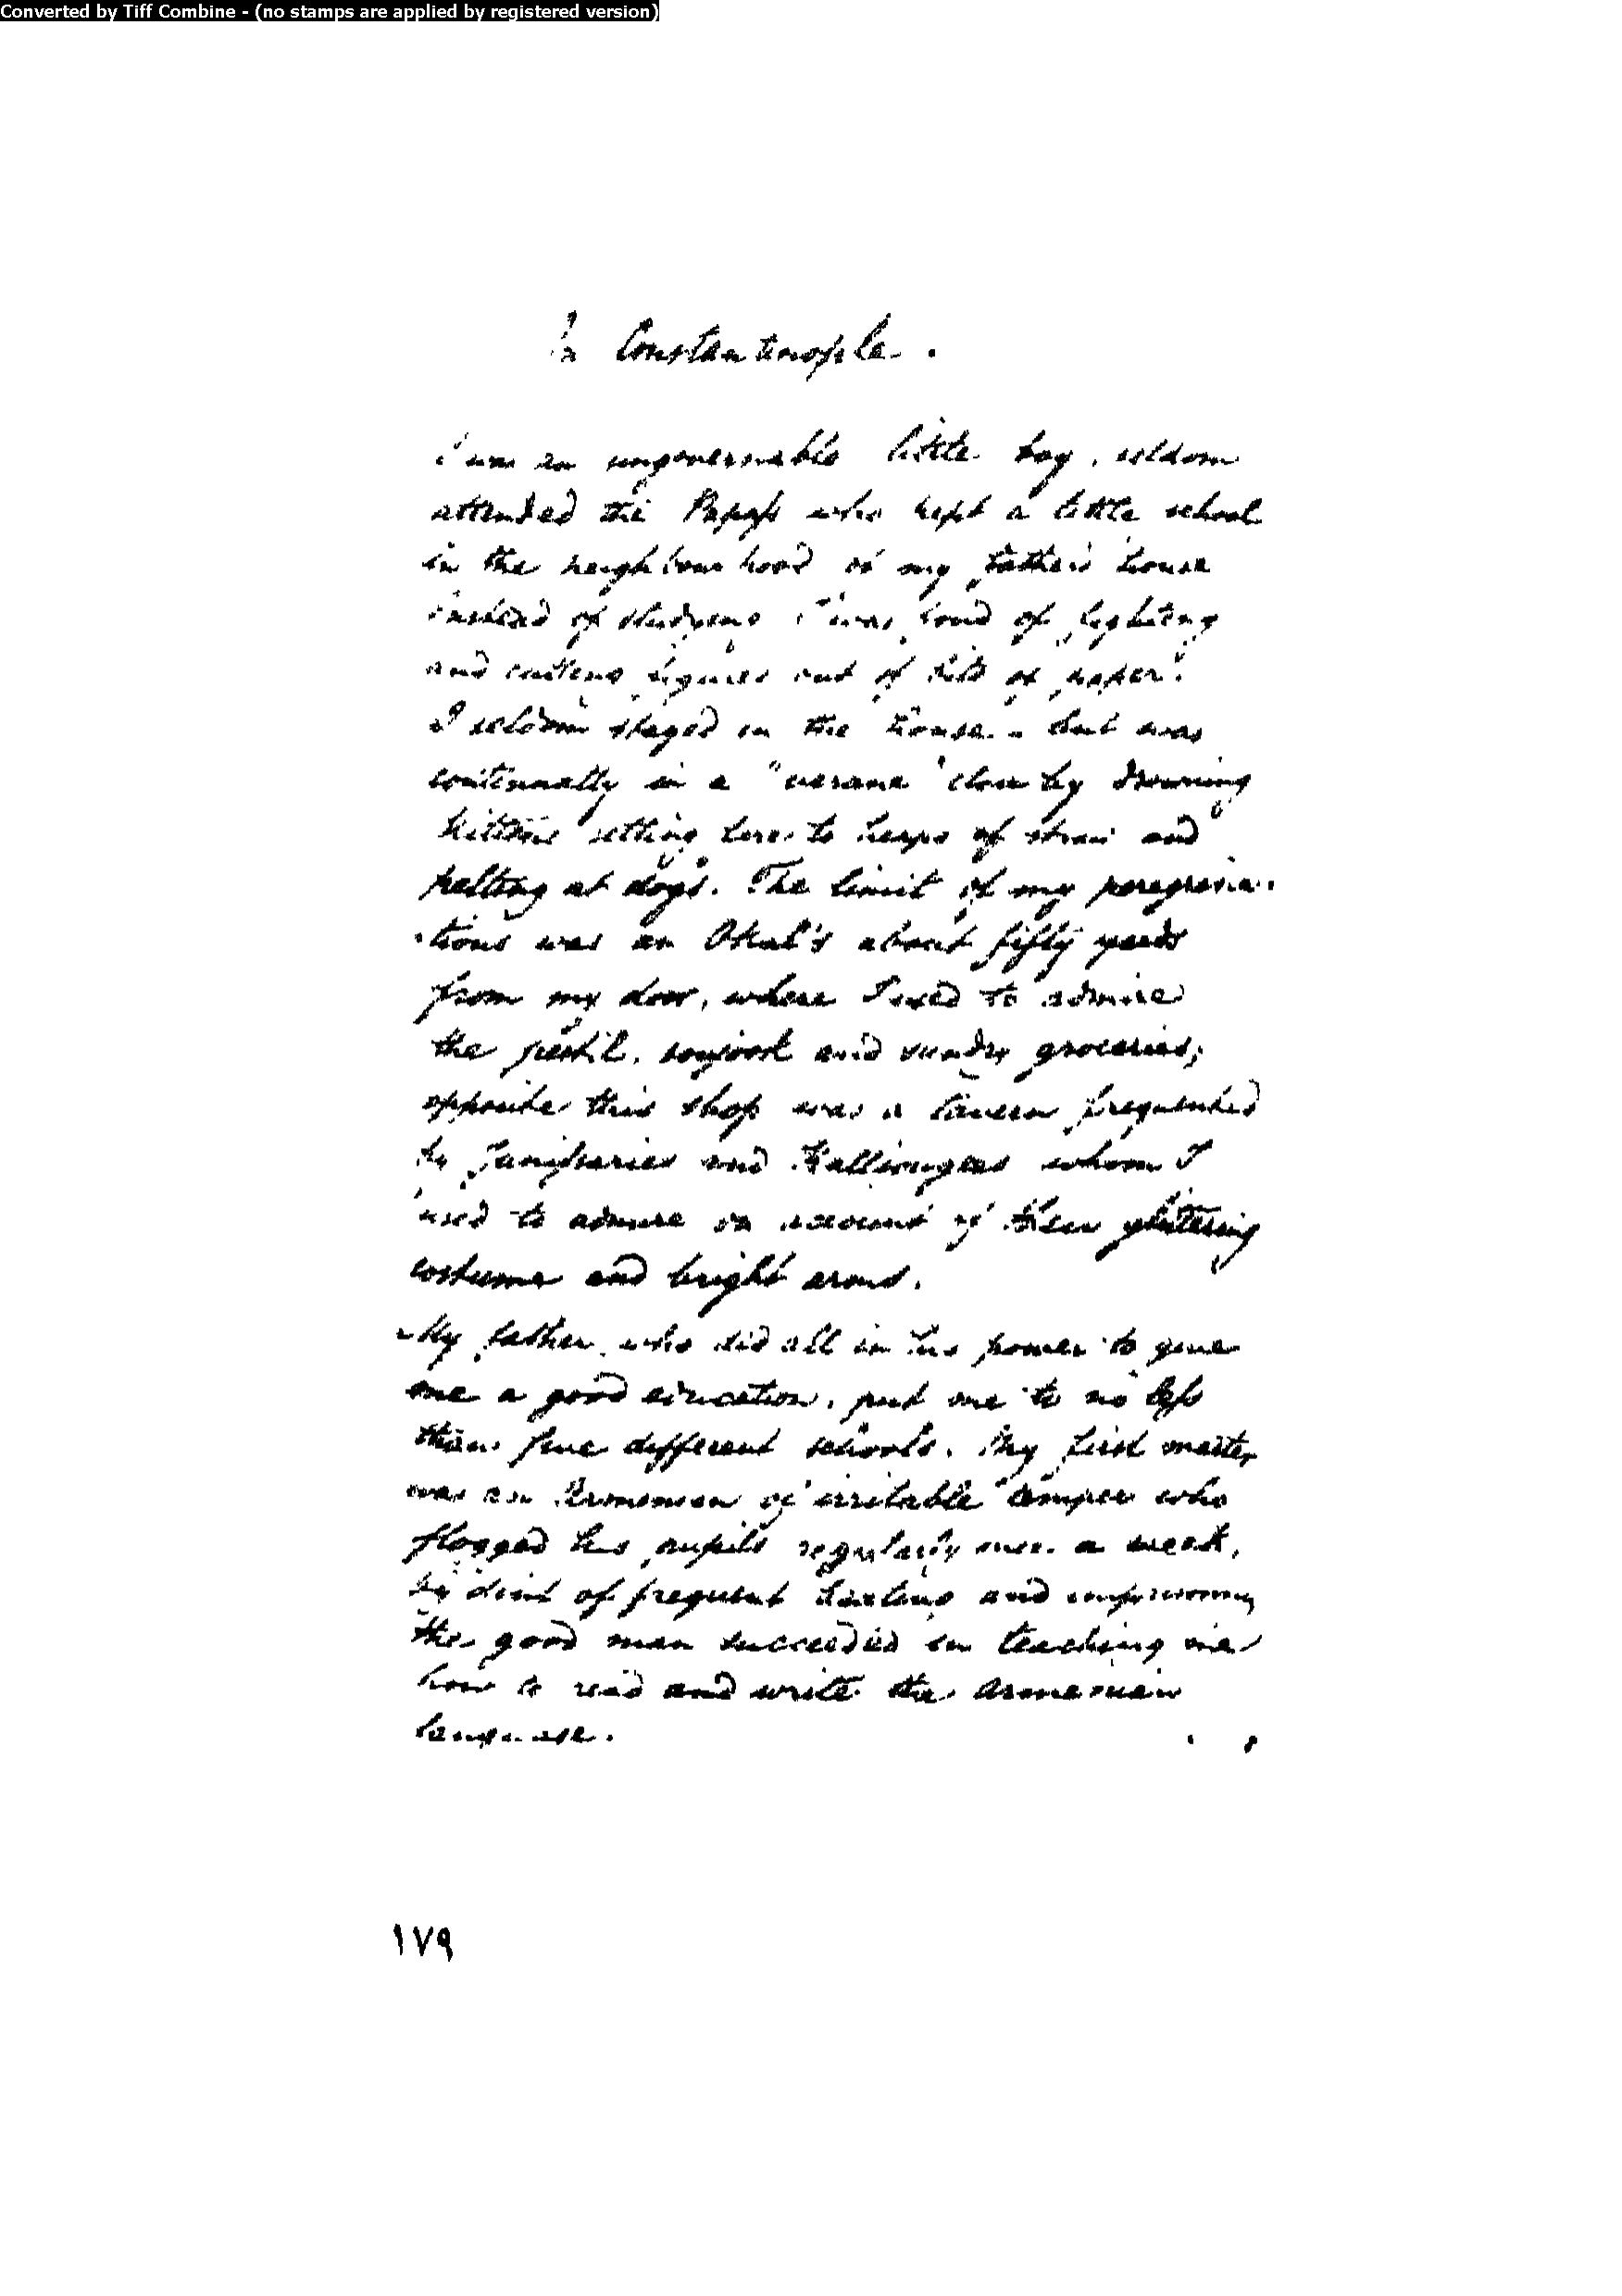 Converted by Tiff Combine - (no stamps are applied by registered version)
In Constantinople.
I was an ungovernable little boy, seldom
attended the Papass who kept a little school
in the neighbourhood of my father's house
instead of studying I was fond of fighting
and cutting figures out of bits of paper.
I seldom staged in the house - but was
continually in a "verane" close by drowning
kittens setting fire to heaps of straw and
pelting at dogs. The limit of my peregrina-
-tions was an Okal's about fifty yards
from my door, where I used to admire
the pestil, soujook and sundry groceries,
opposite this shop was a tavern frequented
by Janissaries and Kalliongees whom I
used to admire on account of their glittering
costume and bright arms.
My father, who did all in his power to give
me a good education, put me to no less
than five different schools. My first master
was an Armenian of irritable temper who
flogged his pupils regularly once a week,
by dint of frequent and
the good man succeeded in teaching me
how to read and write the Armenian
language.
١٧٩